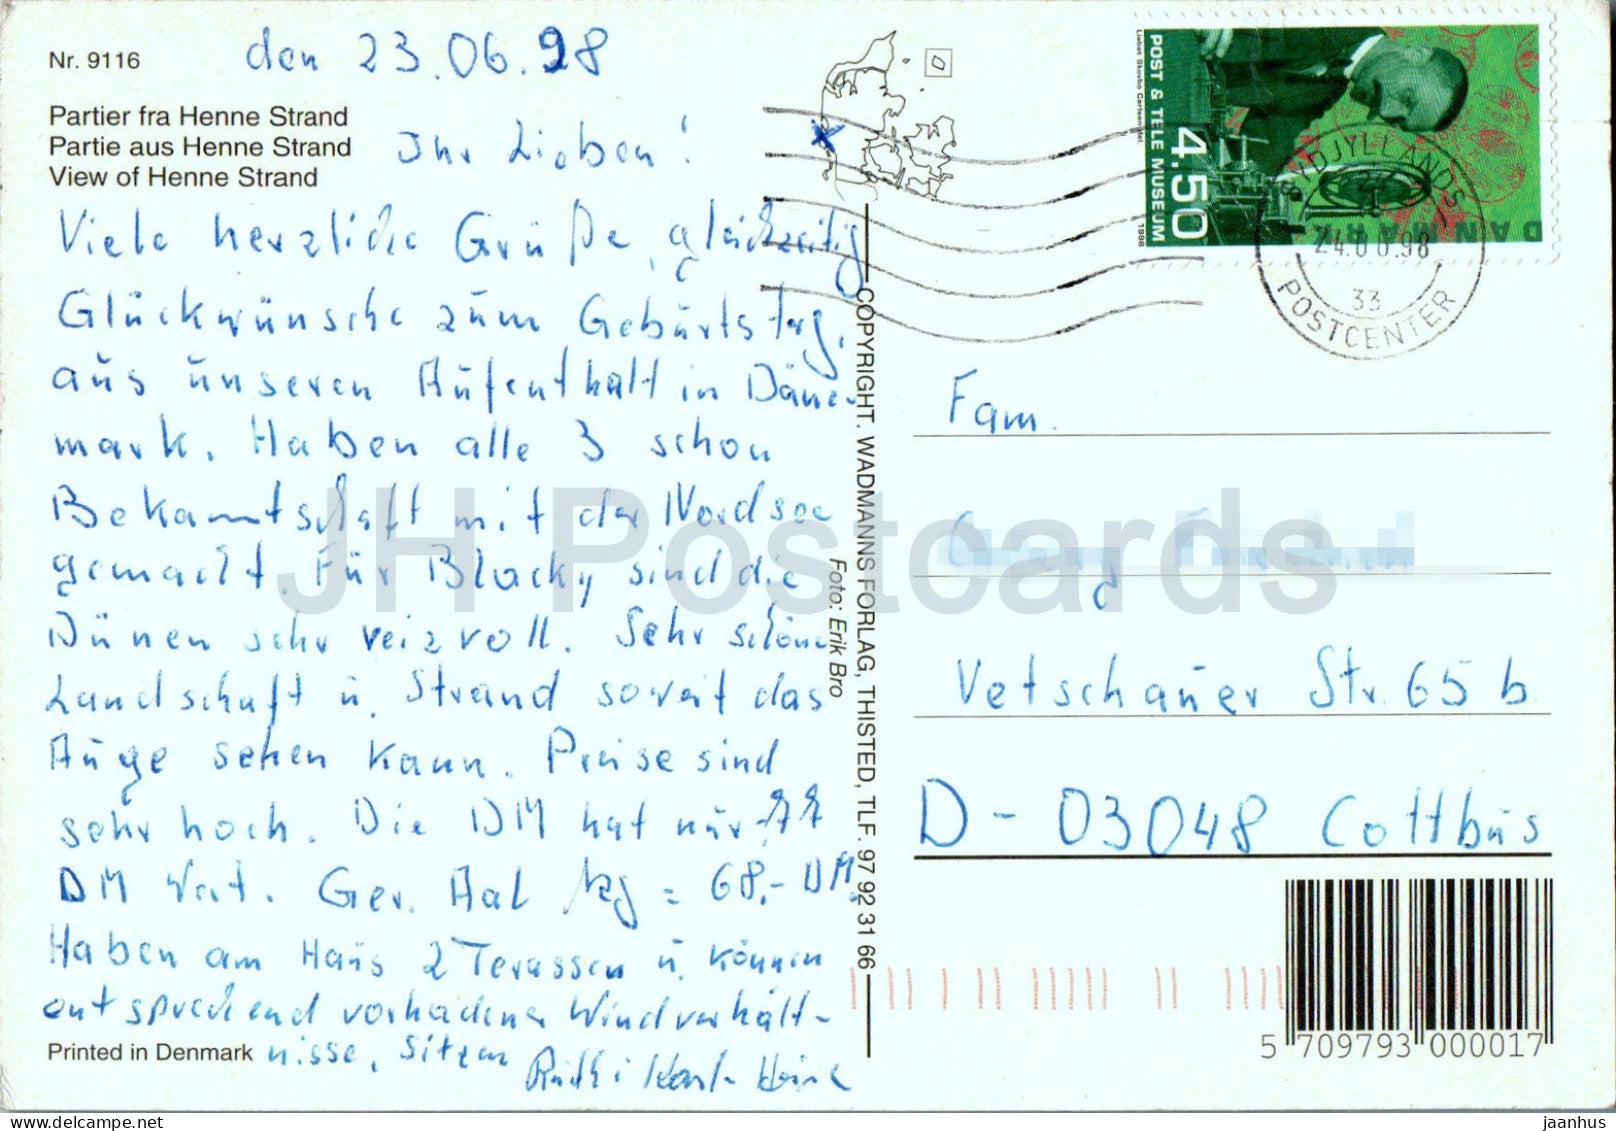 Nr. 9116
den 23.06.98
Partier fra Henne Strand
Partie aus Henne Strand
View of Henne Strand
Ihr Lieben!
Viele herzliche Grüße, gleichzeitig
Glückwünsche zum Geburtstag,
aus unseren Aufenthalt in Däne-
mark. Haben alle 3 schon
Bekanntschaft mit der Nordsee
gemacht. Für Blacky sind die
Dünen sehr reizvoll. Sehr schöne
Landschaft u. Strand soweit das
Auge sehen kann. Preise sind
sehr hoch. Die DM hat nur
DM Wert. Ger. Aal 1kg = 68,- DM.
Haben am Haus 2 Terassen u. können
entsprechend vorhadener Windverhält-
nisse, sitzen
Printed in Denmark
COPYRIGHT. WADMANNS FORLAG, THISTED, TLF. 97 92 31 66
Foto: Erik Bro
POST & TELE MUSEUM
4.50
1998
DANMARK
YDJYLLANDS
24.06.98
33
POSTCENTER
Fam.
Vetschauer Str. 65 b
D - 03048 Cottbus
5 709793 000017
JH Postcards
jaanhus